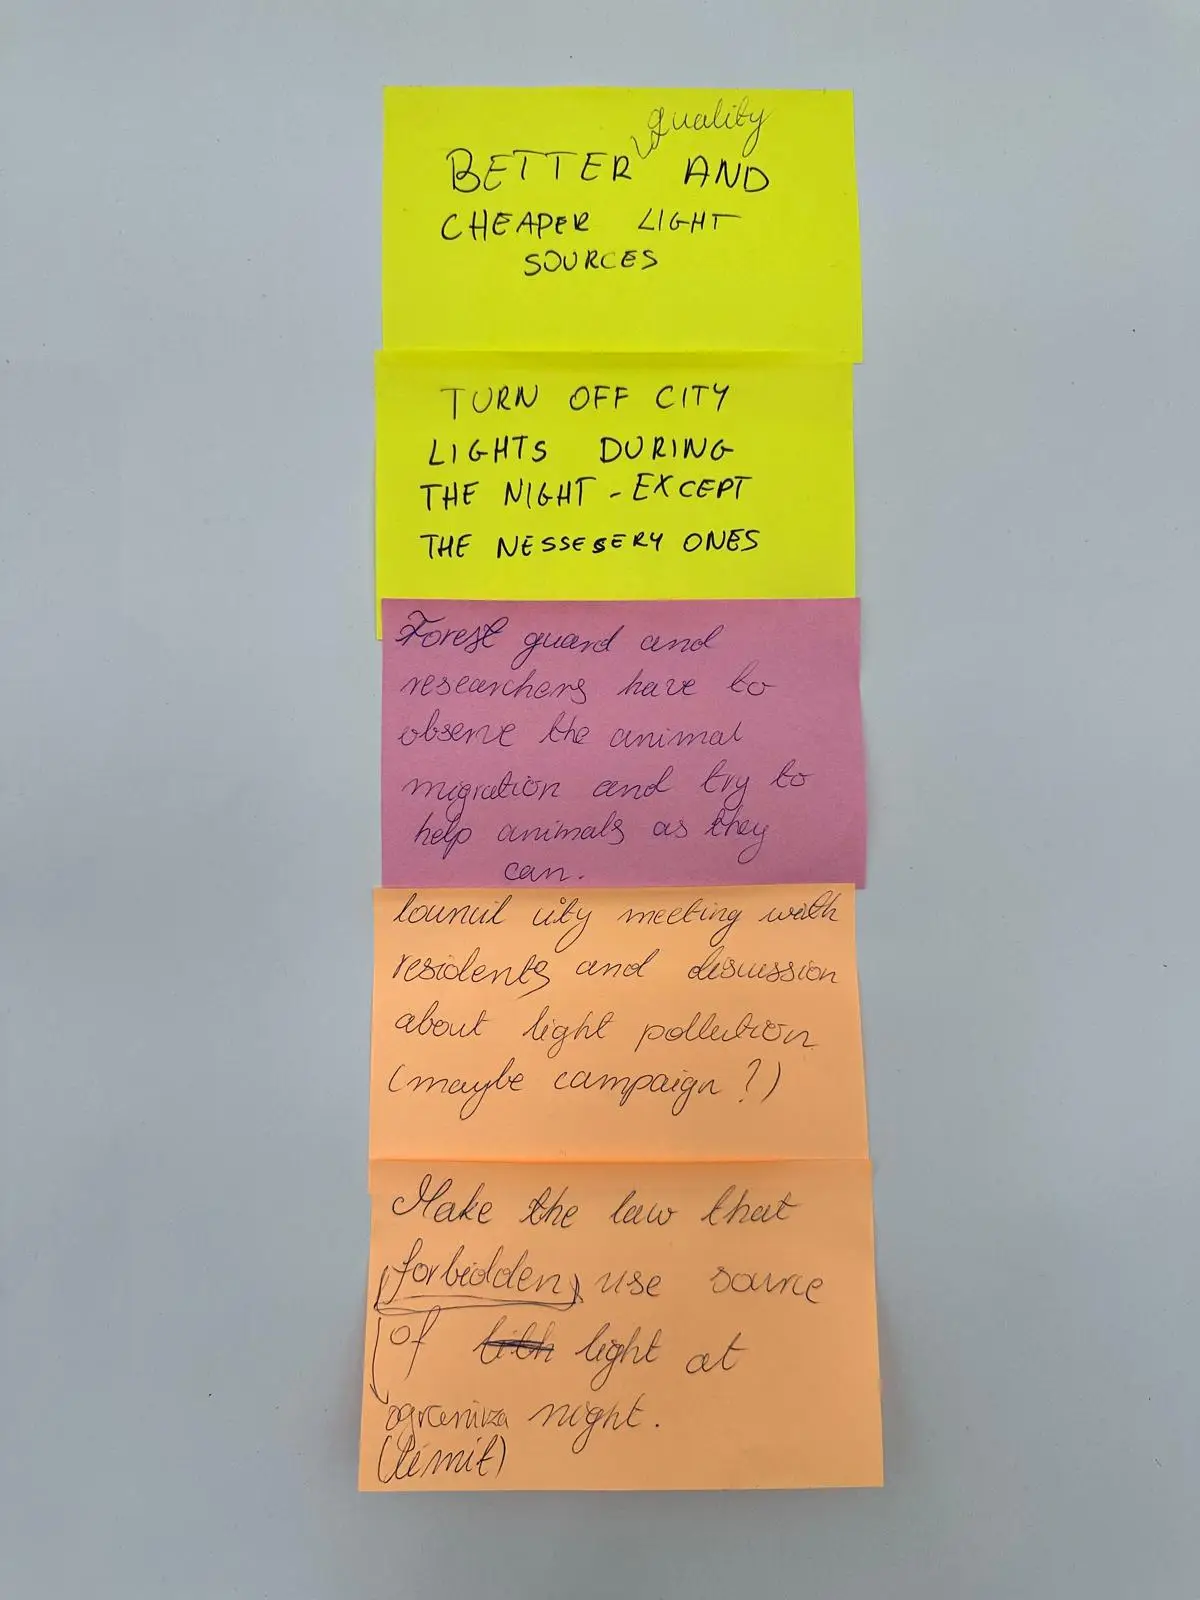 quality
BETTER AND
CHEAPER LIGHT
SOURCES
TURN OFF CITY
LIGHTS DURING
THE NIGHT - EXCEPT
THE NESSESERY ONES
Forest guard and
researchers have to
observe the animal
migration and try to
help animals as they
can.
Council city meeting with
residents and discussion
about light pollution
(maybe campaign?)
Make the law that
(forbidden) use source
of light at
ogranicza night.
(limit)